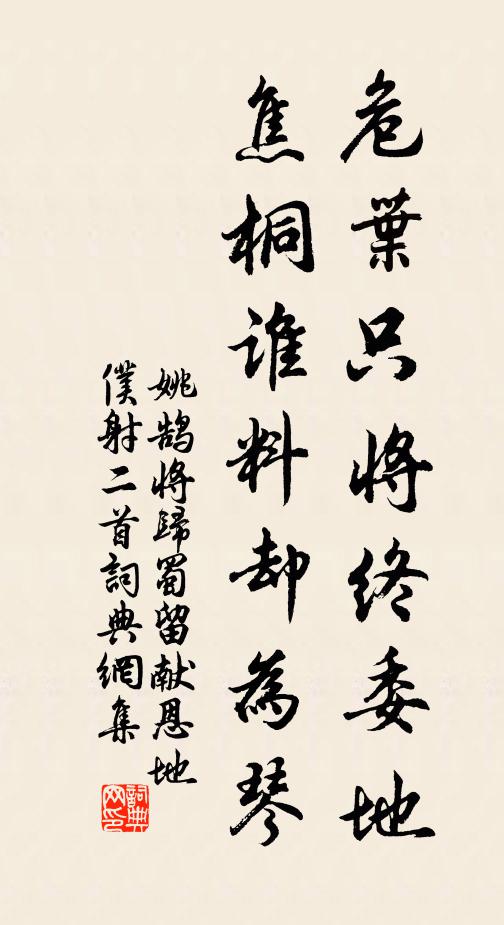 危葉只將終委地
焦桐誰料却為琴
姚鵠將歸蜀留献恩地
僕射二首詞典網集
詞典网印